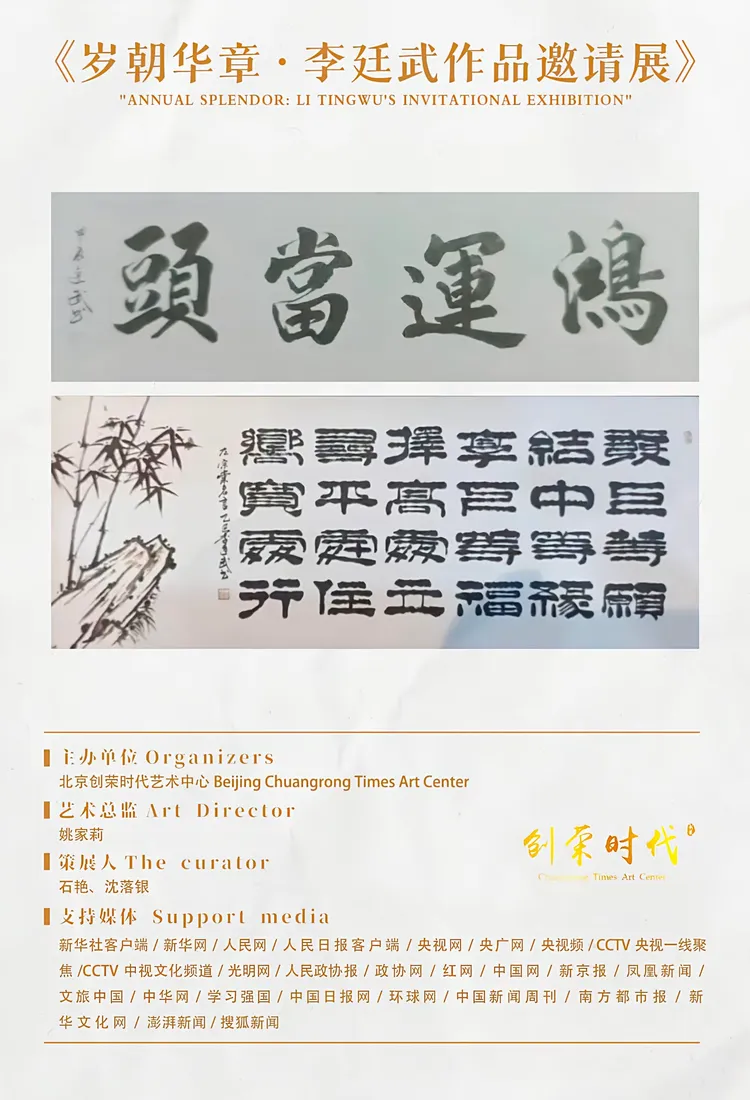 《岁朝华章·李廷武作品邀请展》
"ANNUAL SPLENDOR: LI TINGWU'S INVITATIONAL EXHIBITION"
鴻運當頭
甲辰廷武书
發 等願
結中等緣
享 等福
擇高處立
尋平處住
嚮寬處行
左宗棠名言乙巳李廷武书
主办单位 Organizers
北京创荣时代艺术中心 Beijing Chuangrong Times Art Center
艺术总监 Art Director
姚家莉
策展人 The curator
石艳、沈落银
支持媒体 Support media
新华社客户端 / 新华网 / 人民网 / 人民日报客户端 / 央视网 / 央广网 / 央视频 / CCTV 央视一线聚
焦 /CCTV 中视文化频道 / 光明网 / 人民政协报 / 政协网 / 红网 / 中国网 / 新京报 / 凤凰新闻 /
文旅中国 / 中华网 / 学习强国 / 中国日报网 / 环球网 / 中国新闻周刊 / 南方都市报 / 新
华文化网 / 澎湃新闻 / 搜狐新闻
创荣时代
Chuangrong Times Art Center